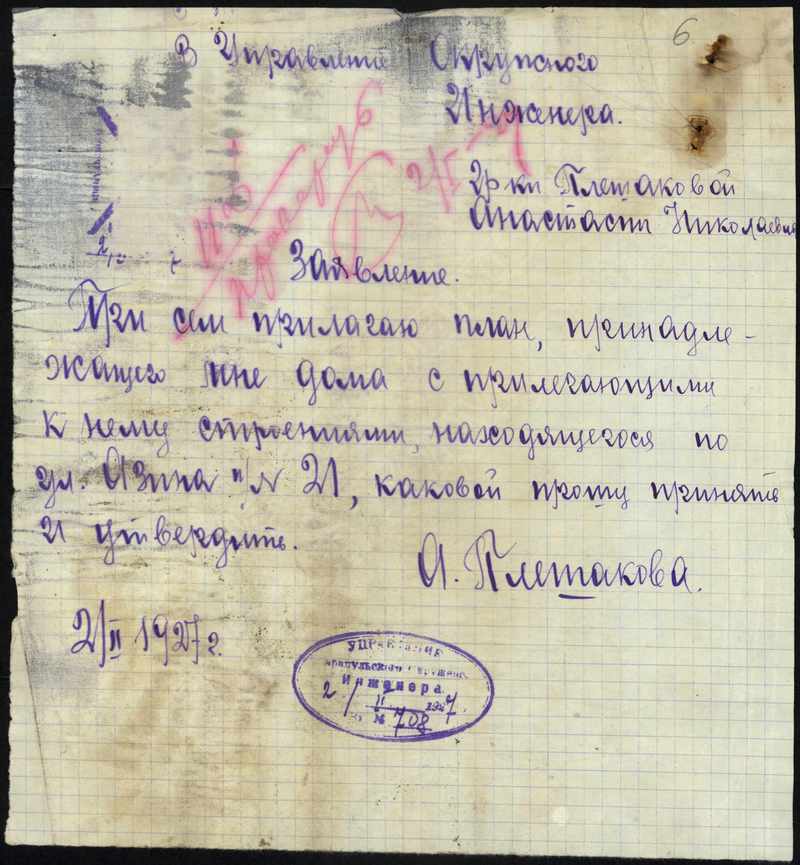 6
В Управление Окружного
Инженера.
Гр-ки Плешаковой
Анастасии Николаевны
Заявление.
При сем прилагаю план, принадле-
жащего мне дома с прилегающими
к нему строениями, находящегося по
ул. Азина п/№ 21, каковой прошу принять
и утвердить.
А. Плешакова.
2/II 1927 г.
УПРАВЛЕНИЕ
Сарапульского Окружного
Инженера
2/II 1927
№ 708